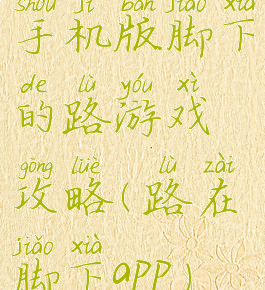 shǒu jī bǎn jiǎo xià
手机版脚下
de lù yóu xì
的路游戏
gōng lüè lù zài
攻略(路在
jiǎo xià
脚下app)